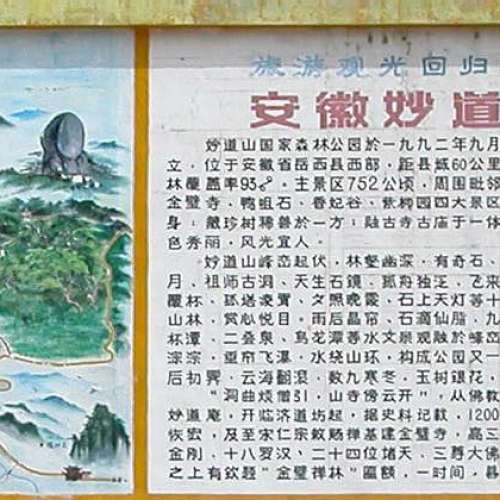 旅游观光回归
安徽妙道
妙道山国家森林公园於一九九二年九月
立，位于安徽省岳西县西部，距县城60公里
林覆盖率93%。主景区752公顷，周围毗领
金壁寺，鸭蛆石、香妃谷、紫柳园四大景区
身；藏珍树稀兽於一方；融古寺古庙于一体
色秀丽，风光宜人。
妙道山峰峦起伏，林壑幽深，有奇石、
月、祖师古洞、天生石镜、孤舟独泛、飞来
覆杯、狐塔凌霄、夕照晚霞、石上天灯等十
山林，赏心悦目。雨后晶帘、石滴仙脂、九
杯潭、二叠泉、鸟花潭等水文景观融於峰峦
淙淙，重帘飞瀑，水绕山环，构成公园又一
后初霁，云海翻滚，数九寒冬，玉树银花，
"洞曲烦僧引，山寺傍云开"，从佛教
妙道庵，开临济道坊起，据史料记载，1200
恢宏，及至宋仁宗敕赐禅基建金壁寺，高三
金刚，十八罗汉、二十四位诸天，三尊大佛
之上有钦题"金壁禅林"匾额，一时间，县